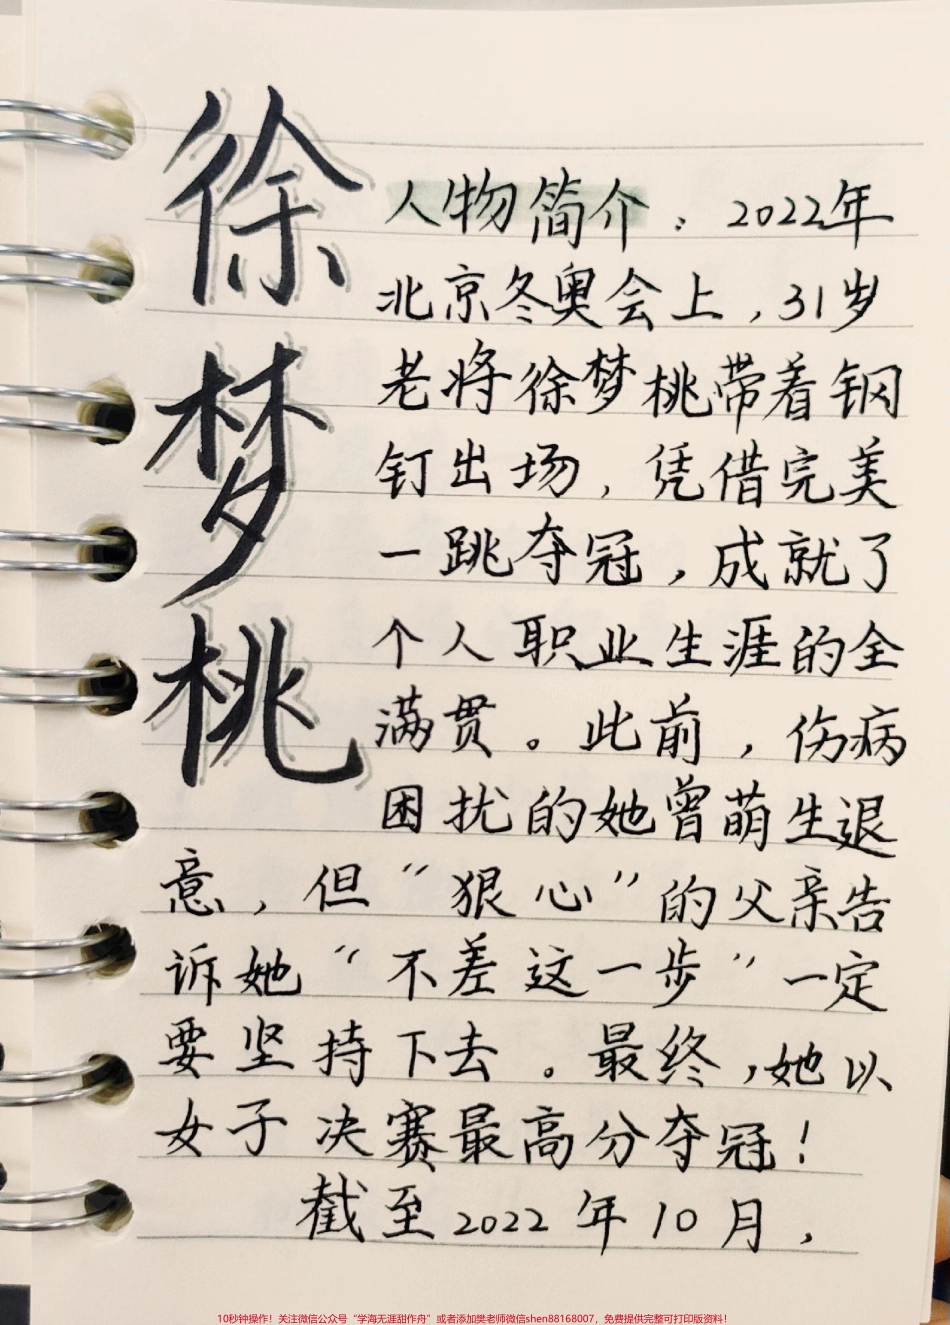 徐梦桃
人物简介：2022年
北京冬奥会上，31岁
老将徐梦桃带着钢
钉出场，凭借完美
一跳夺冠，成就了
个人职业生涯的全
满贯。此前，伤病
困扰的她曾萌生退
意，但“狠心”的父亲告
诉她“不差这一步”一定
要坚持下去。最终，她以
女子决赛最高分夺冠！
截至2022年10月，
10秒钟操作！关注微信公众号“学海无涯甜作舟”或者添加樊老师微信shen88168007，免费提供完整可打印版资料！